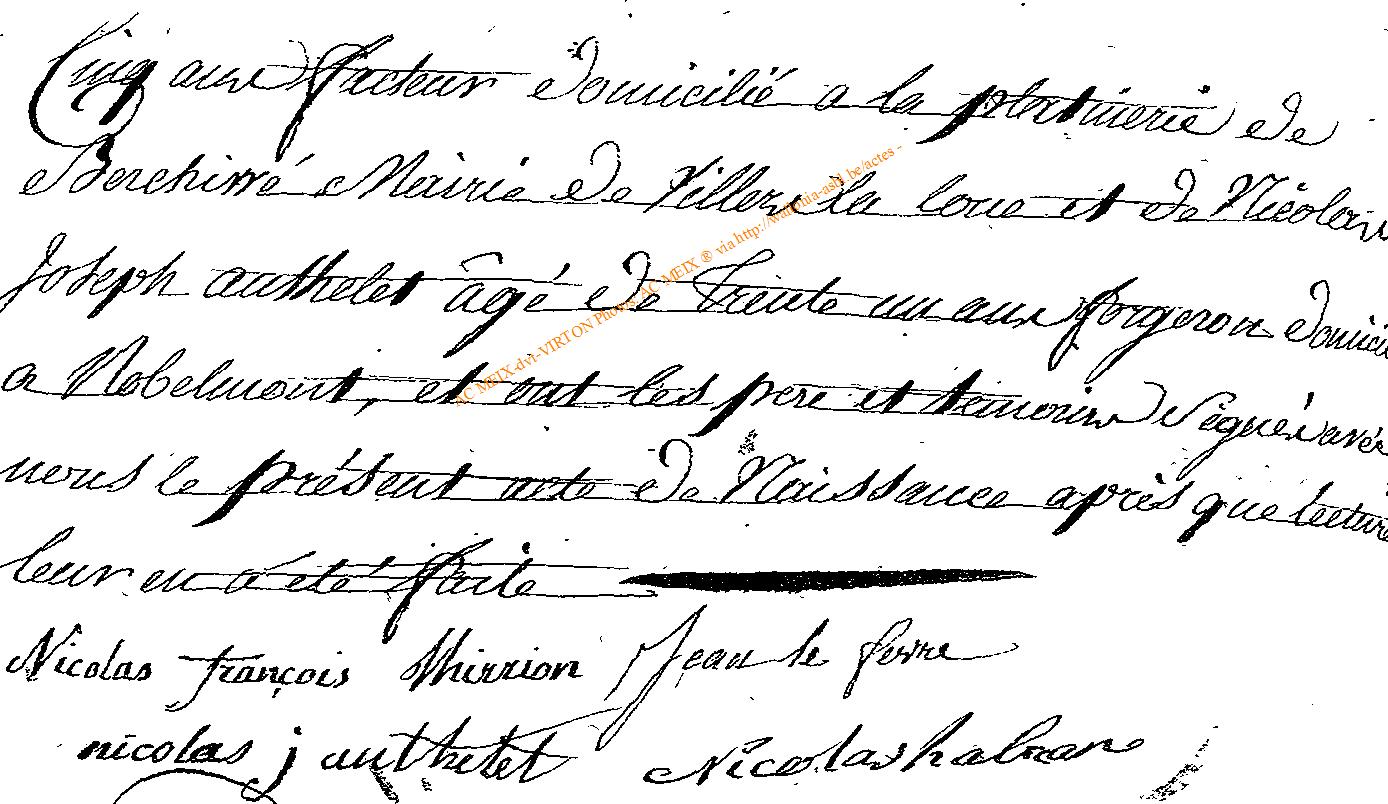 Cinq ans facteur domicilié a la platinerie de
Berchiwé Mairie de Villers la loue et de Nicolas
Joseph authelet âgé de Trente un ans forgeron domicil
a Robelmont, et ont les pere et temoins signés avec
nous le présent acte de Naissance après que lecture
leur en a été faite
Nicolas françois Thirrion Jean le ferre
nicolas j authelet Nicolas
AC MEIX-dvt-VIRTON Photos AC MEIX ® via http://wallonia-asbl.be/actes -